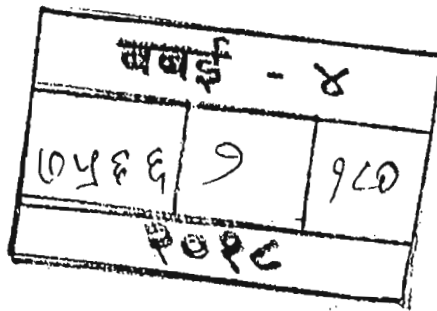 बबई - ४
७५६६ १८०
२०१८